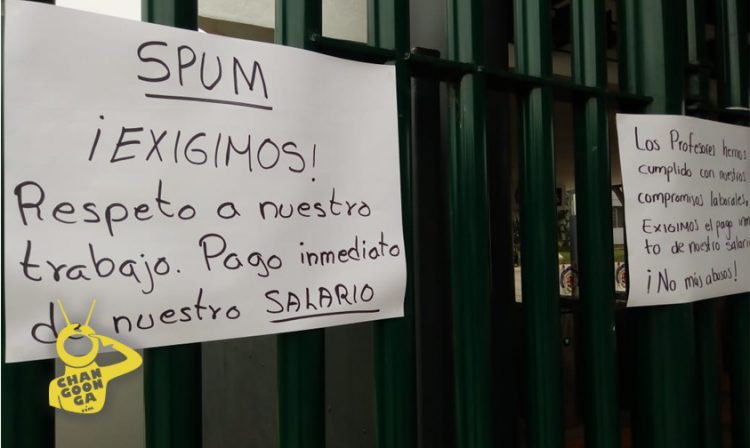 SPUM
¡EXIGIMOS!
Respeto a nuestro
trabajo. Pago inmediato
de nuestro SALARIO
Los Profesores hemos
cumplido con nuestros
compromisos laborales,
EXIGIMOS el pago inm
to de nuestro salari
¡No más abusos!
CHAN
GOON
GA
.com